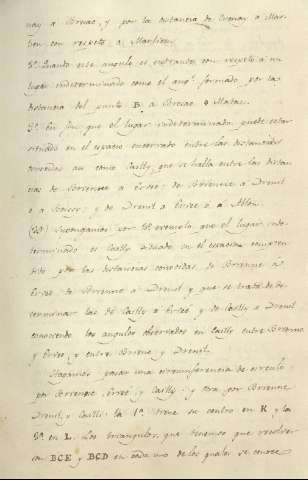 nay a Brevac, y por la distancia de Evenay a Mar-
con con respeto a Marlieu.
3º Quando este angulo es extraido con respeto a un
lugar indeterminado como el angº formado por la
distancia del punto B a Brevac o Matac.
3º En fin que el lugar indeterminado puede estar
situado en el espacio encerrado entre las distancias
conocidas asi como Cailly que se halla entre las distan-
cias de Brienne a Evreé; de Brienne a Dreuil
o a Sorce; y de Dreuil a Evreé o a Allon.
Supongamos por exemplo que el lugar inde-
terminado es Cailly situado en el espacio compren-
dido por las distancias conocidas, de Brienne a
Evreé, de Brienne a Dreuil y que se trata de de-
terminar las de Cailly a Evreé y de Cailly a Dreuil
conociendo los angulos observados en Cailly entre Brienne
y Evreé, y entre Brienne y Dreuil.
Hagamos pasar una circunferencia de circulo
por Brienne, Evreé y Cailly; y otra por Brienne
Dreuil y Cailli: la 1ª tiene su centro en K y la
2ª en L. Los triangulos, que tenemos que resolver
son BCE y BCD en cada uno de los quales se conoce